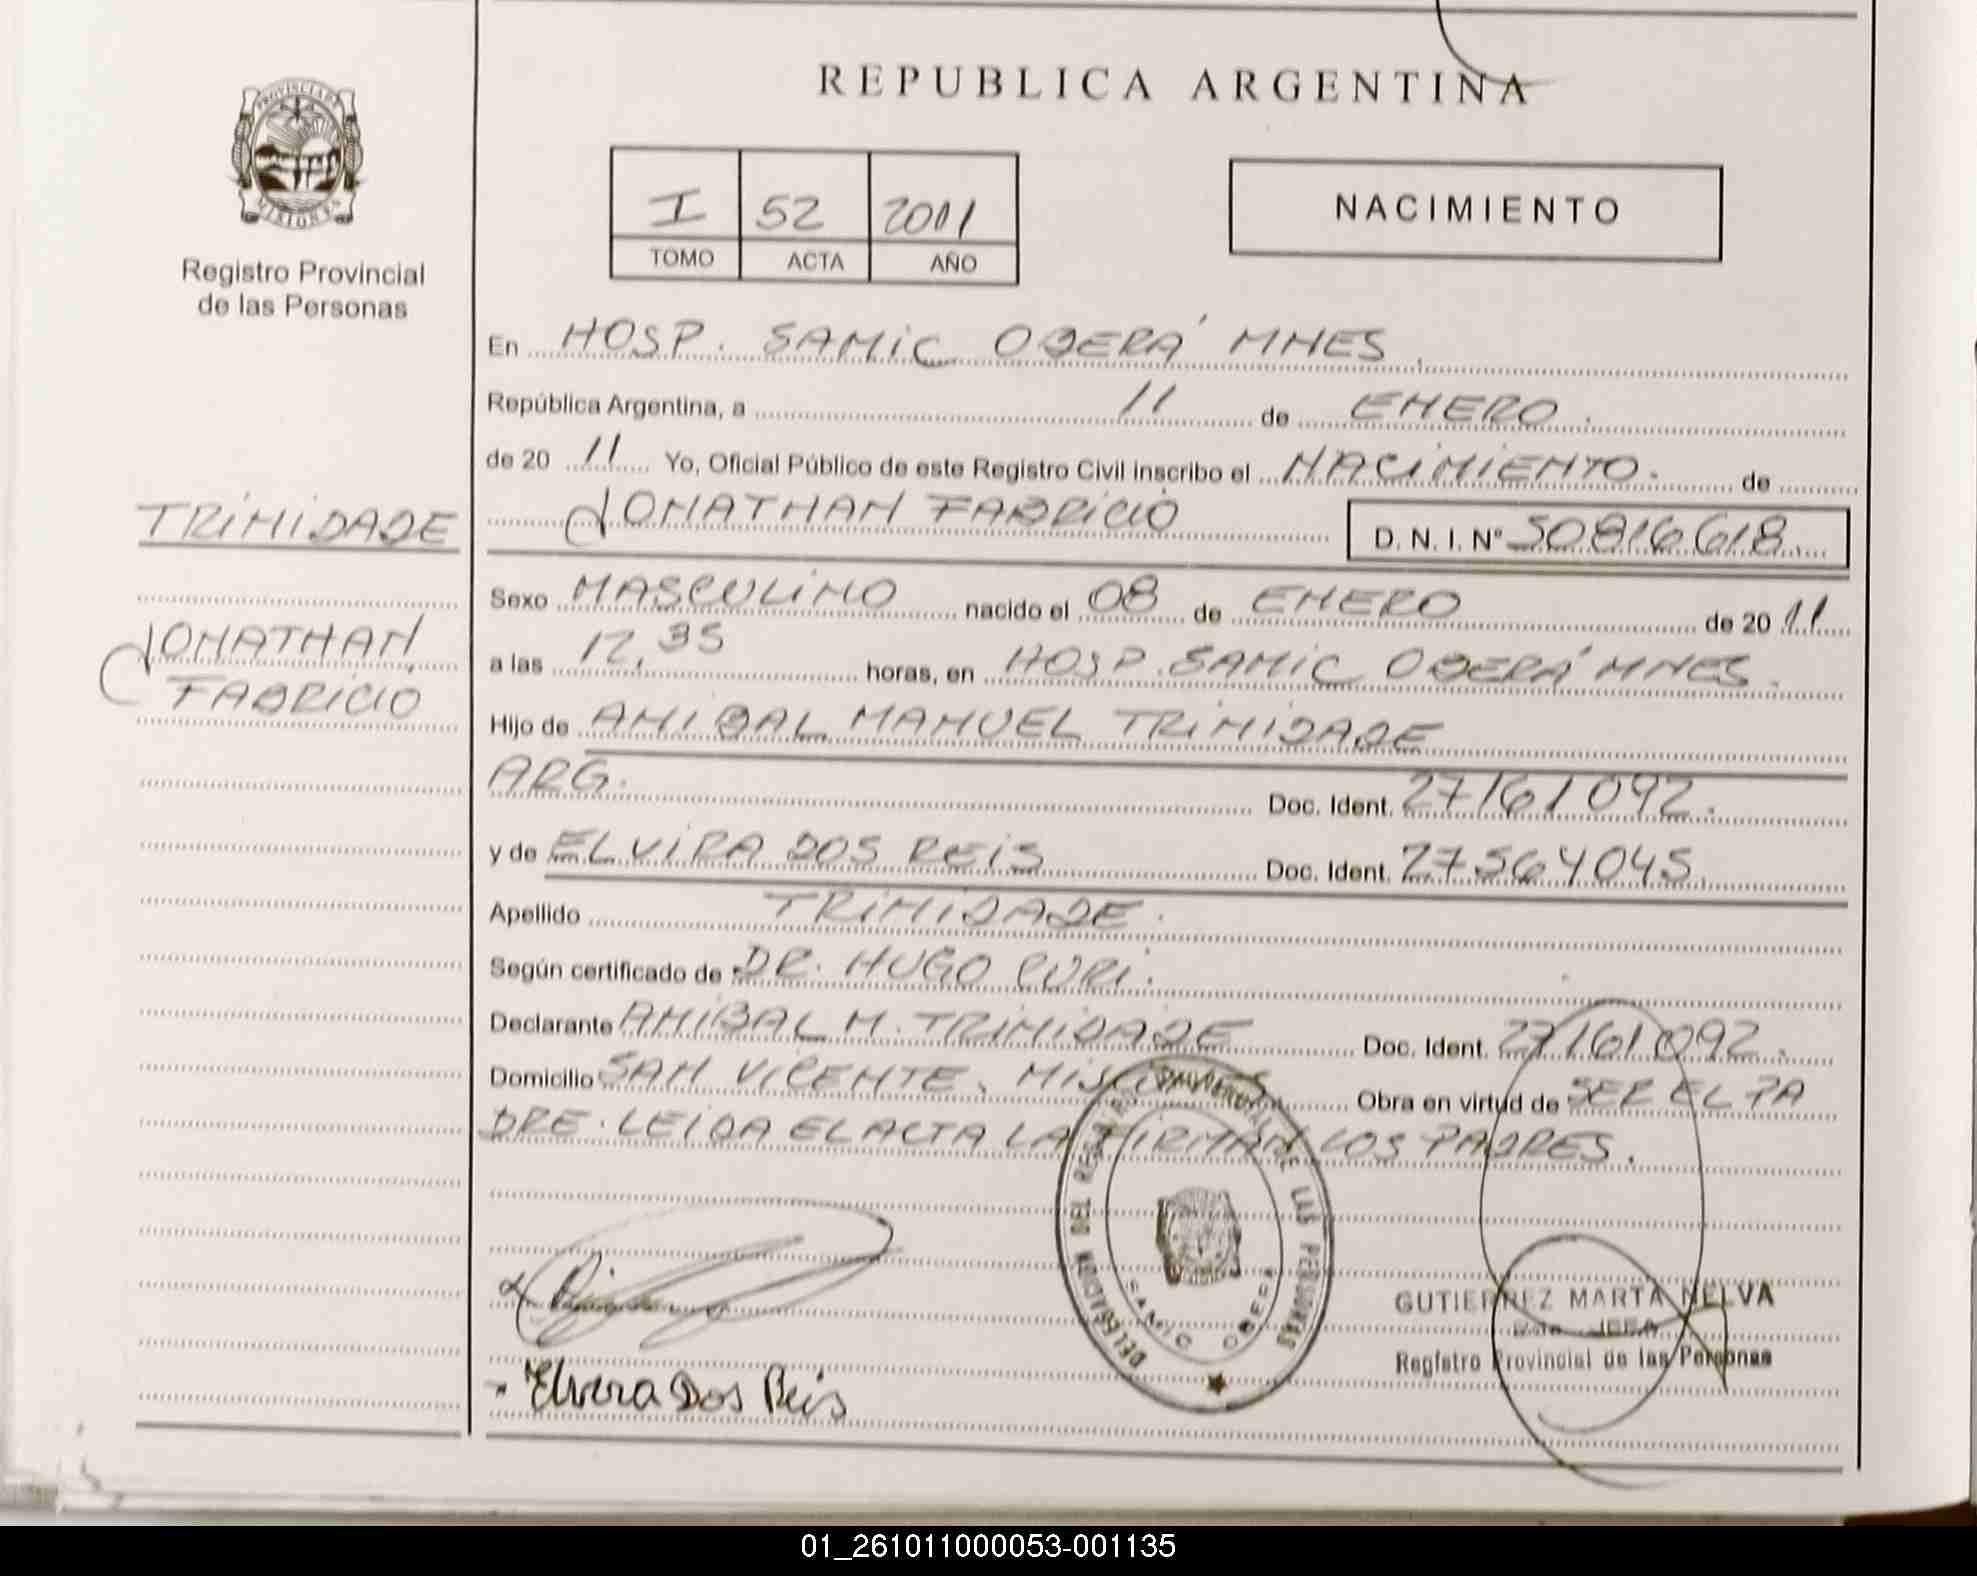 REPUBLICA ARGENTINA
PROVINCIA DE
MISIONES
Registro Provincial
de las Personas
I 52 2011
TOMO ACTA AÑO
NACIMIENTO
En HOSP. SAMIC OBERÁ MNES.
República Argentina, a 11 de ENERO.
de 20 11 Yo, Oficial Público de este Registro Civil inscribo el NACIMIENTO. de
JONATHAN FABRICIO D. N. I. N° 50816618
TRINIDADE
JONATHAN
FABRICIO
Sexo MASCULINO nacido el 08 de ENERO de 20 11
a las 12,35 horas, en HOSP. SAMIC OBERÁ MNES.
Hijo de ANIBAL MANUEL TRINIDADE
ARG. Doc. Ident. 27161092.
y de ELVIRA DOS REIS Doc. Ident. 27564045
Apellido TRINIDADE.
Según certificado de DR. HUGO CURI.
Declarante ANIBAL M. TRINIDADE Doc. Ident. 27161092.
Domicilio SAN VICENTE, MISIONES Obra en virtud de SER EL PA
DRE. LEIDA EL ACTA LA FIRMAN LOS PADRES.
DELEGACION DEL REGISTRO PROVINCIAL DE LAS PERSONAS
SAMIC OBERA
GUTIERREZ MARTA NELVA
JEFA
Registro Provincial de las Personas
Elvira Dos Reis
01_261011000053-001135